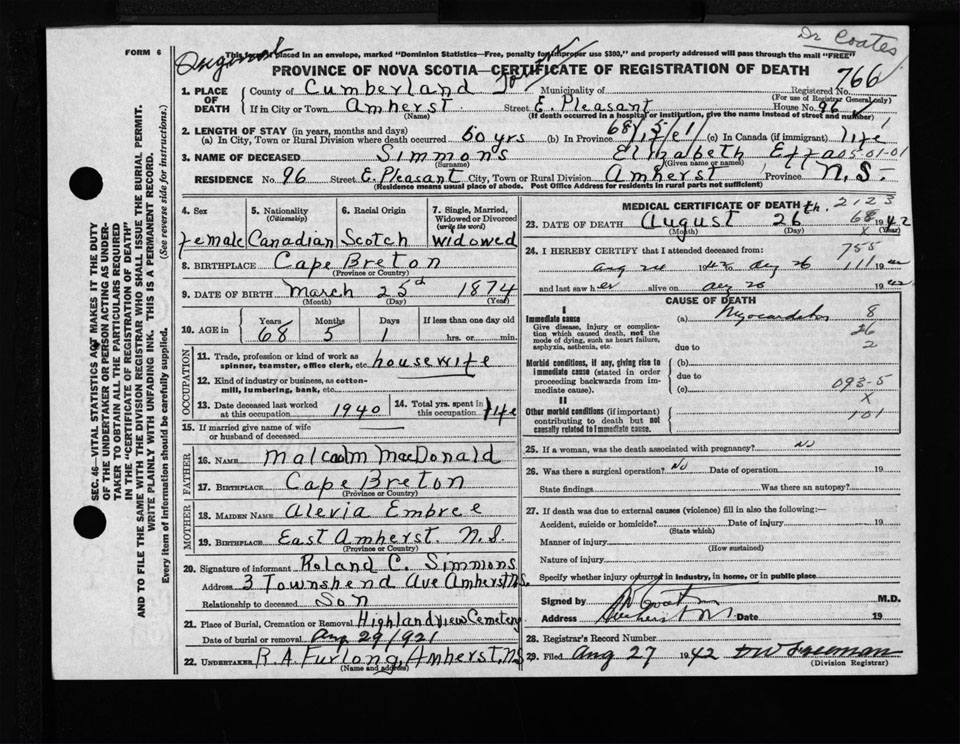 Dr Coates
FORM 6
This form placed in an envelope, marked "Dominion Statistics—Free, penalty for improper use $300," and properly addressed will pass through the mail "FREE"
PROVINCE OF NOVA SCOTIA—CERTIFICATE OF REGISTRATION OF DEATH
766
1. PLACE OF DEATH
County of Cumberland Municipality of Registered No.
(For use of Registrar General only)
If in City or Town Amherst Street E. Pleasant House No. 96
(Name) (If death occurred in a hospital or institution, give the name instead of street and number)
2. LENGTH OF STAY (in years, months and days)
(a) In City, Town or Rural Division where death occurred 50 yrs (b) In Province 68/5/1 life (c) In Canada (if immigrant) life
3. NAME OF DECEASED Simmons Elizabeth Effa 05-01-01
(Surname) (Given name or names)
RESIDENCE No. 96 Street E. Pleasant City, Town or Rural Division Amherst Province N.S.
(Residence means usual place of abode. Post Office Address for residents in rural parts not sufficient)
4. Sex female
5. Nationality (Citizenship) Canadian
6. Racial Origin Scotch
7. Single, Married, Widowed or Divorced (write the word) widowed
8. BIRTHPLACE Cape Breton
(Province or Country)
9. DATE OF BIRTH March 25 1874
(Month) (Day) (Year)
10. AGE in Years 68 Months 5 Days 1 If less than one day old hrs. or min.
OCCUPATION
11. Trade, profession or kind of work as spinner, teamster, office clerk, etc. housewife
12. Kind of industry or business, as cotton-mill, lumbering, bank, etc.
13. Date deceased last worked at this occupation 1940
14. Total yrs. spent in this occupation
15. If married give name of wife or husband of deceased
FATHER
16. NAME Malcolm MacDonald
17. BIRTHPLACE Cape Breton
(Province or Country)
MOTHER
18. MAIDEN NAME Alevia Embree
19. BIRTHPLACE East Amherst. N.S.
(Province or Country)
20. Signature of informant Roland C. Simmons
Address 3 Townshend Ave Amherst N.S.
Relationship to deceased Son
21. Place of Burial, Cremation or Removal Highland View Cemetery
Date of burial or removal Aug 29/1921
22. UNDERTAKER R.A. Furlong, Amherst, N.S.
(Name and address)
MEDICAL CERTIFICATE OF DEATH
2123
23. DATE OF DEATH August 26th 1942
(Month) (Day) (Year)
68
X
24. I HEREBY CERTIFY that I attended deceased from:
755
Aug 1942 Aug 26 1942
111
and last saw her alive on Aug 26 1942
CAUSE OF DEATH
I
Immediate cause (a) Myocarditis 8
Give disease, injury or complication which caused death, not the mode of dying, such as heart failure, asphyxia, asthenia, etc.
26
due to 2
Morbid conditions, if any, giving rise to immediate cause (stated in order proceeding backwards from immediate cause).
(b)
due to
(c) 093-5
X
II
Other morbid conditions (if important) contributing to death but not causally related to immediate cause.
101
25. If a woman, was the death associated with pregnancy? No
26. Was there a surgical operation? No Date of operation 19
State findings Was there an autopsy?
27. If death was due to external causes (violence) fill in also the following:—
Accident, suicide or homicide? Date of injury 19
(State which)
Manner of injury
(How sustained)
Nature of injury
Specify whether injury occurred in industry, in home, or in public place
Signed by Coates M.D.
Address Amherst N.S. Date 19
28. Registrar's Record Number
29. Filed Aug 27 1942 Freeman
(Division Registrar)
SEC. 46—VITAL STATISTICS ACT MAKES IT THE DUTY
OF THE UNDERTAKER OR PERSON ACTING AS UNDER-
TAKER TO OBTAIN ALL THE PARTICULARS REQUIRED
IN THE "CERTIFICATE OF REGISTRATION OF DEATH"
AND TO FILE THE SAME WITH THE DIVISION REGISTRAR WHO SHALL ISSUE THE BURIAL PERMIT.
WRITE PLAINLY WITH UNFADING INK. THIS IS A PERMANENT RECORD.
Every item of information should be carefully supplied. (See reverse side for instructions.)